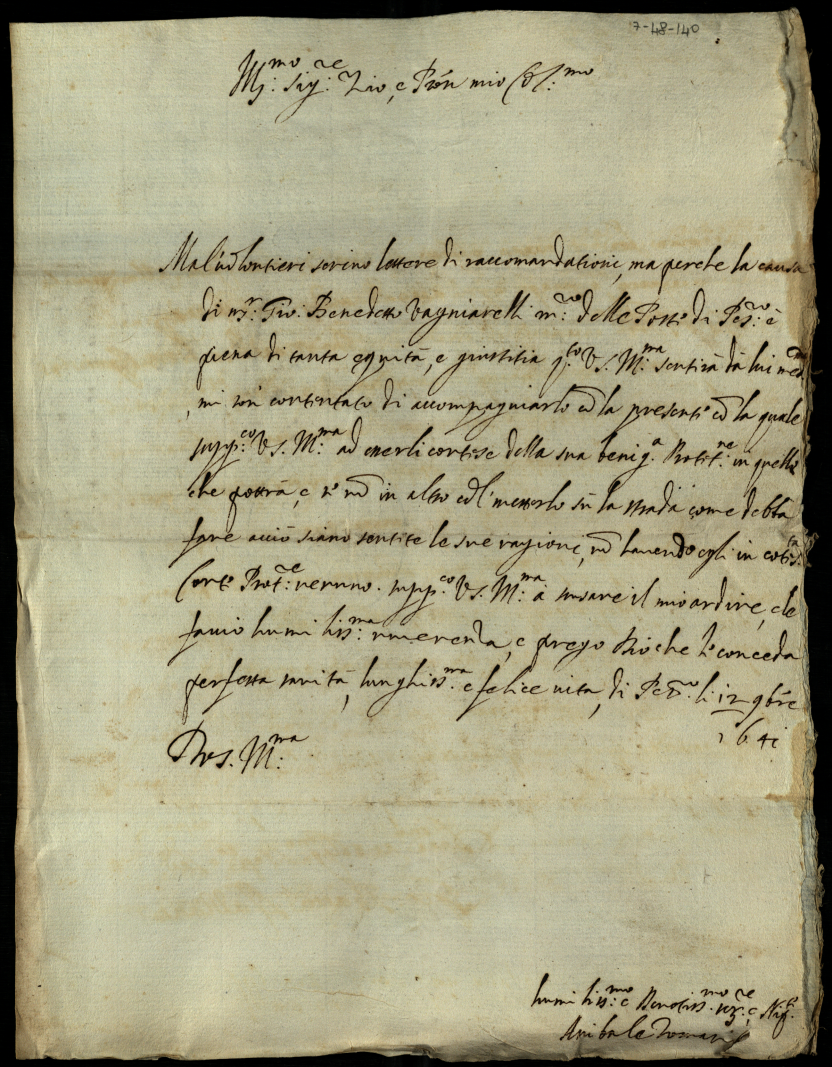 7-48-140
Ill:mo Sig:re Zio, e Prõn mio Col:mo
Mal uolontieri scriuo lettere di raccomandationi, ma perche la causa
di m.r: Gio: Benedetto Vagniarelli m:ro delle Poste di Pes:ro è
piena di tanta equità, e giustitia q:to V.S. Ill:ma sentirà dà lui med.mo
, mi son contentato di accompagniarlo cõ la presente cõ la quale
supp:co V.S. Ill:ma ad esserli cortese della sua benig.a Protit:ne in quello
che potrà, e se nõ in altro cõ l'metterlo sù la strada come debba
fare acciò siano sentite le sue ragioni, nõ hauendo egli in cotes:ta
Corte Prot:e neruno. supp:co V.S. Ill:ma à scusare il mio ardire, che
faccio humiliss:ma riuerenza, e prego Dio che le conceda
perfetta sanità, lunghiss:ma e felice uita, di Pes:ro li 12 9bre
1641
Di V.S. Ill:ma
humiliss:mo e Deuotiss:mo ser:re e Nip:te
Anibale